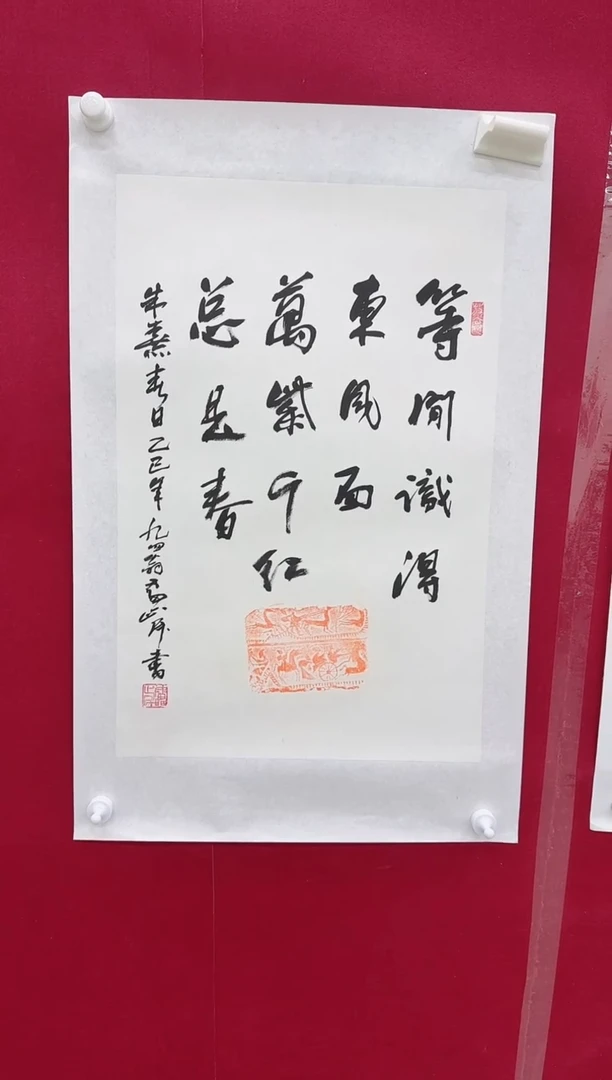 等閒識得
東風面
萬紫千红
总是春
朱熹春日乙巳年九四翁
書